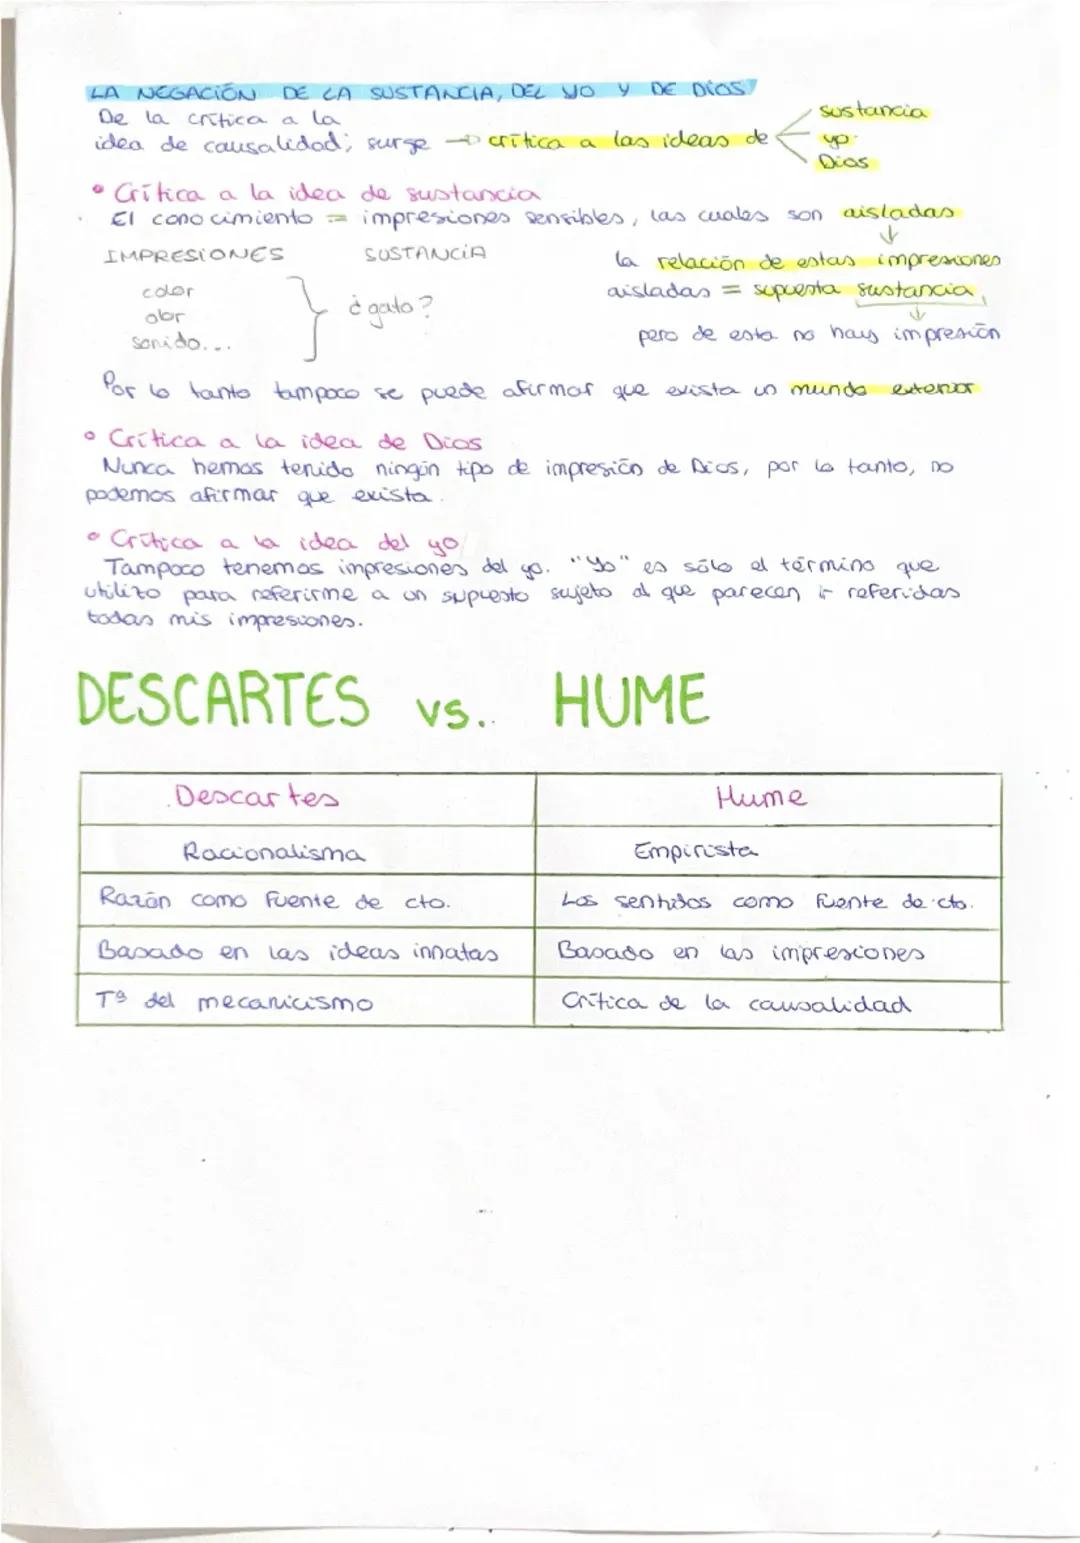 LA NEGACIÓN DE LA SUSTANCIA, DEL YO Y DE DIOS
De la crítica a la
idea de causalidad; surge → crítica a las ideas de
sustancia
yo
Dios
• Crítica a la idea de sustancia
El conocimiento = impresiones sensibles, las cuales son aisladas
IMPRESIONES SUSTANCIA
color
olor
sonido...
¿gato?
la relación de estas impresiones
aisladas = supuesta sustancia,
pero de esta no hay impresión
Por lo tanto tampoco se puede afirmar que exista un mundo exterior
• Crítica a la idea de Dios
Nunca hemos tenido ningún tipo de impresión de Dios, por lo tanto, no
podemos afirmar que exista.
• Crítica a la idea del yo
Tampoco tenemos impresiones del yo. "Yo" es sólo el término que
utilizo para referirme a un supuesto sujeto al que parecen ir referidas
todas mis impresiones.
DESCARTES vs. HUME
Descartes Hume
Racionalisma Empirista
Razón como fuente de cto. Los sentidos como fuente de cto.
Basado en las ideas innatas Basado en las impresiones
Tª del mecanicismo Crítica de la causalidad